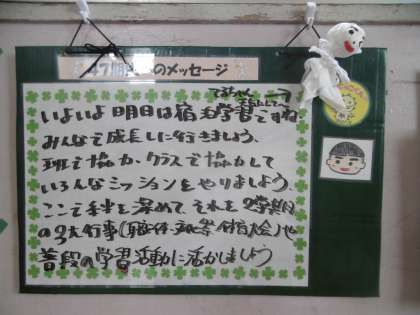 47期 のメッセージ
いよいよ明日は宿泊学習ですね
みんなで成長しに行きましょう。
班で協力、クラスで協力して
いろんなミッションをやりましょう。
ここで絆を深めて、それを2学期
の3大行事(職体・祭・体育大会)や
普段の学習活動に活かしましょう